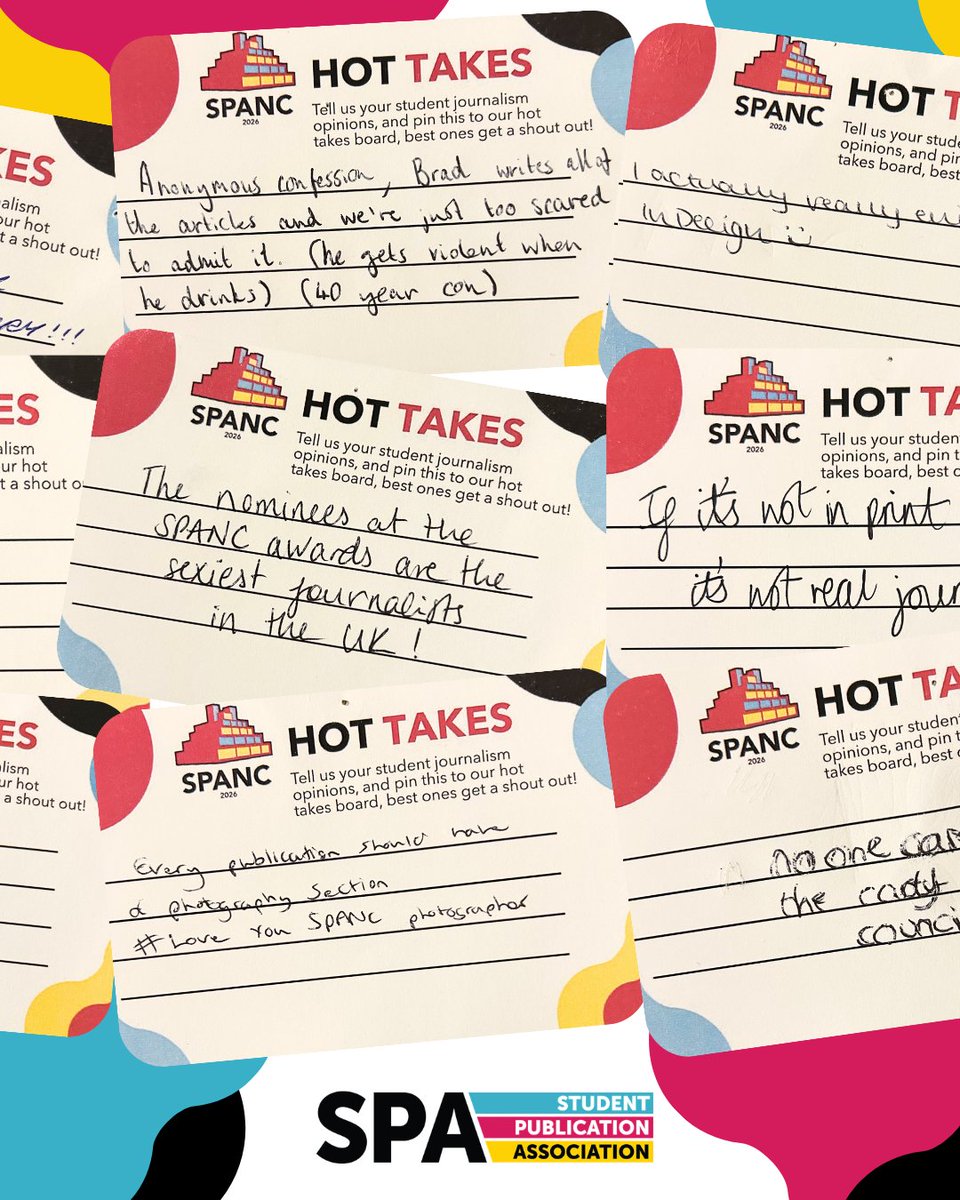 KES
alism
our hot
et a shout out!
!!!
SPANC
2026
HOT TAKES
Tell us your student journalism
opinions, and pin this to our hot
takes board, best ones get a shout out!
Anonymous confession, Brad writes all of
the articles and we're just too scared
to admit it. (he gets violent when
he drinks) (40 year con)
SPANC
2026
HOT T
Tell us your studen
opinions, and pin th
takes board, best on
I actually really enj
InDesign
ES
alism
ur hot
a shout o
SPANC
2026
HOT TAKES
Tell us your student journalism
opinions, and pin this to our hot
takes board, best ones get a shout out!
The nominees at the
SPANC awards are the
sexiest journalists
in the UK!
SPANC
2026
HOT TA
Tell us your student
opinions, and pin t
takes board, best o
If it's not in print
it's not real jour
ES
alism
ur hot
a shout out!
SPANC
2026
HOT TAKES
Tell us your student journalism
opinions, and pin this to our hot
takes board, best ones get a shout out!
Every publication should have
a photography section
#Love you SPANC photographer
SPANC
2026
HOT TA
Tell us your student
opinions, and pin t
takes board, best o
no one ca
the
counci
SPA STUDENT
PUBLICATION
ASSOCIATION